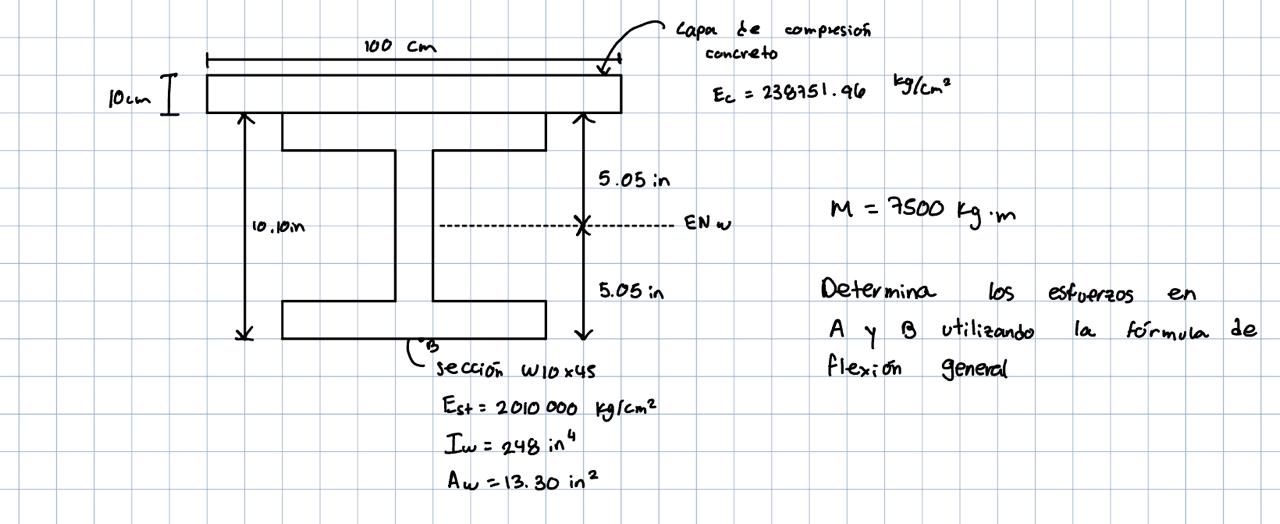 Capa de compresión
concreto
100 cm
10cm
Ec = 238751.96 kg/cm²
5.05 in
M = 7500 kg·m
10.10in
EN w
5.05 in
Determina los esfuerzos en
A y B utilizando la fórmula de
flexión general
B
sección W10x45
Est = 2010 000 kg/cm²
Iw = 248 in⁴
Aw = 13.30 in²